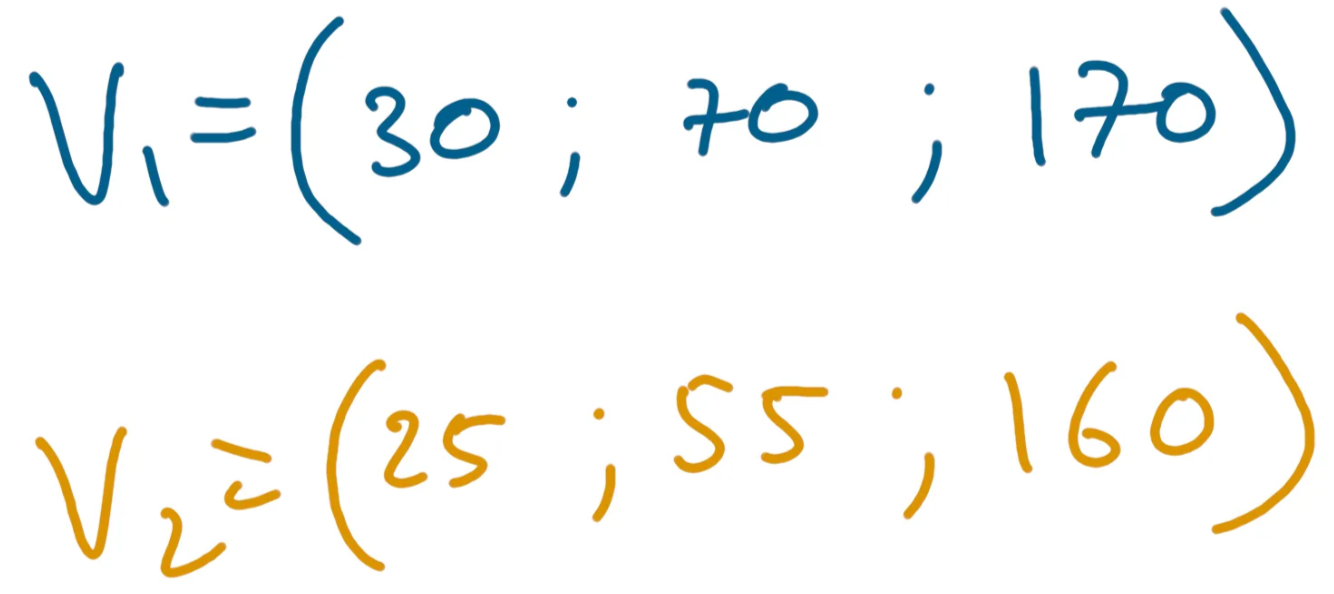 V₁=(30 ; 70 ; 170)
V₂=(25 ; 55 ; 160)